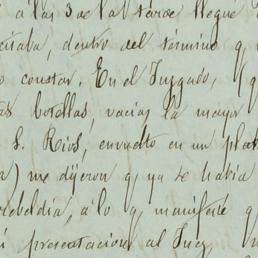 a las 3 de la tarde llegue
citaba, dentro del término q
constar. En el Juzgado, (q
as botellas, vacias la mayor
S. Rois, envuelto en un
) me dijeron q ya se habia
rebeldia, a lo q manifesté q
presentacion al Juez